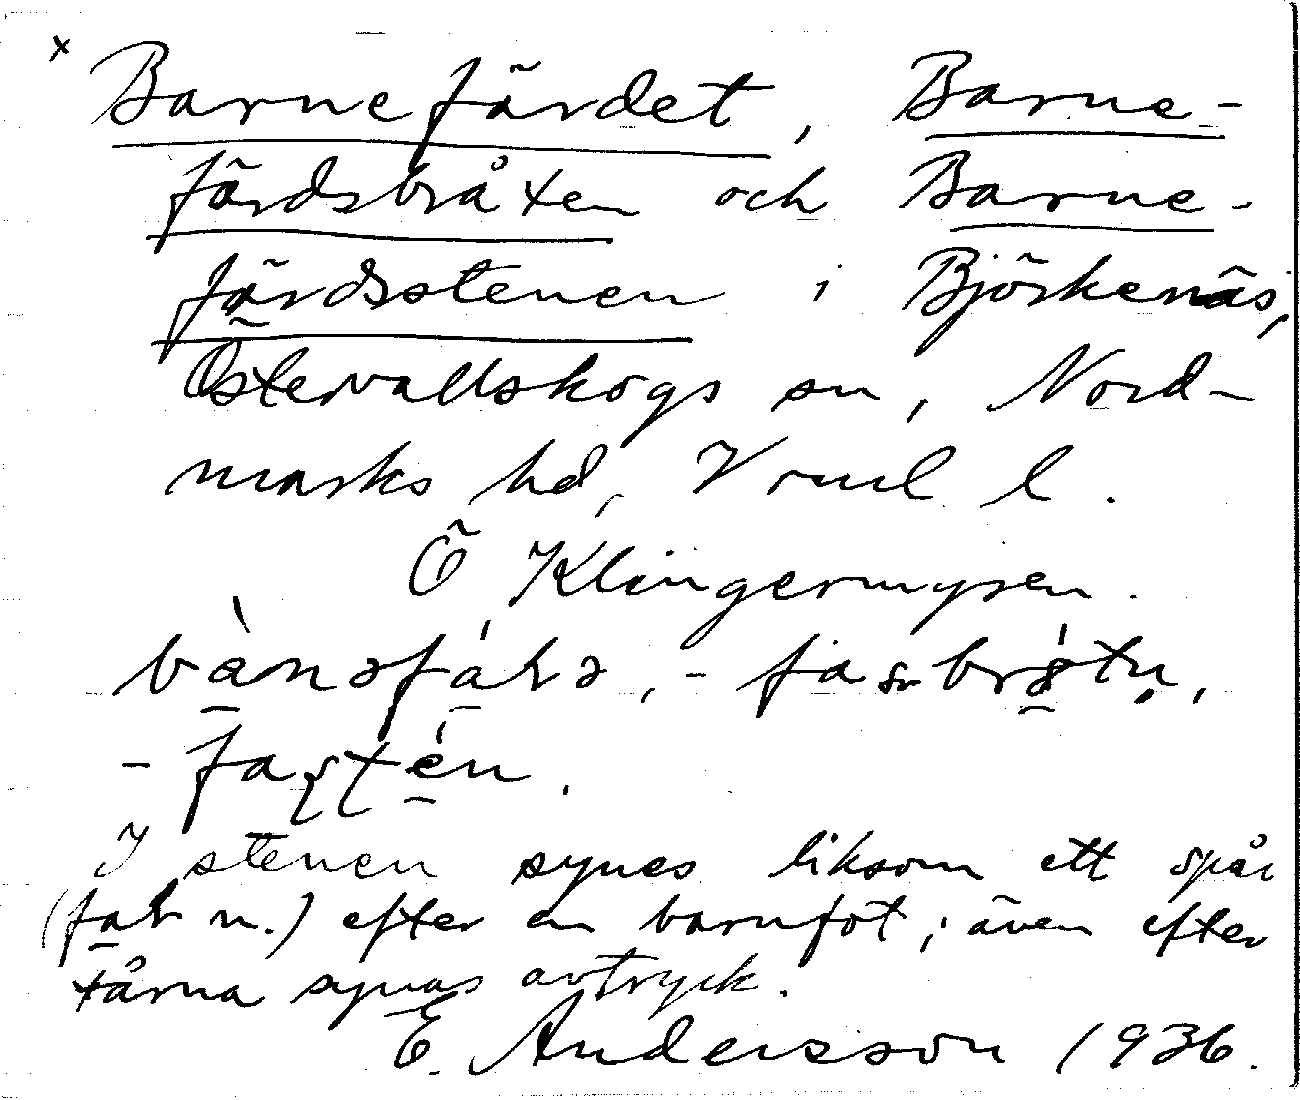 x Barnefärdet, Barne-
färdsbråten och Barne-
färdsstenen i Björkenäs,
Östervallskogs sn, Nord-
marks hd, Vrml l.
Ö Klingermyren.
I stenen synes liksom ett spår
n.) efter en barnfot; även efter
tårna synas avtryck.
E. Andersson 1936.